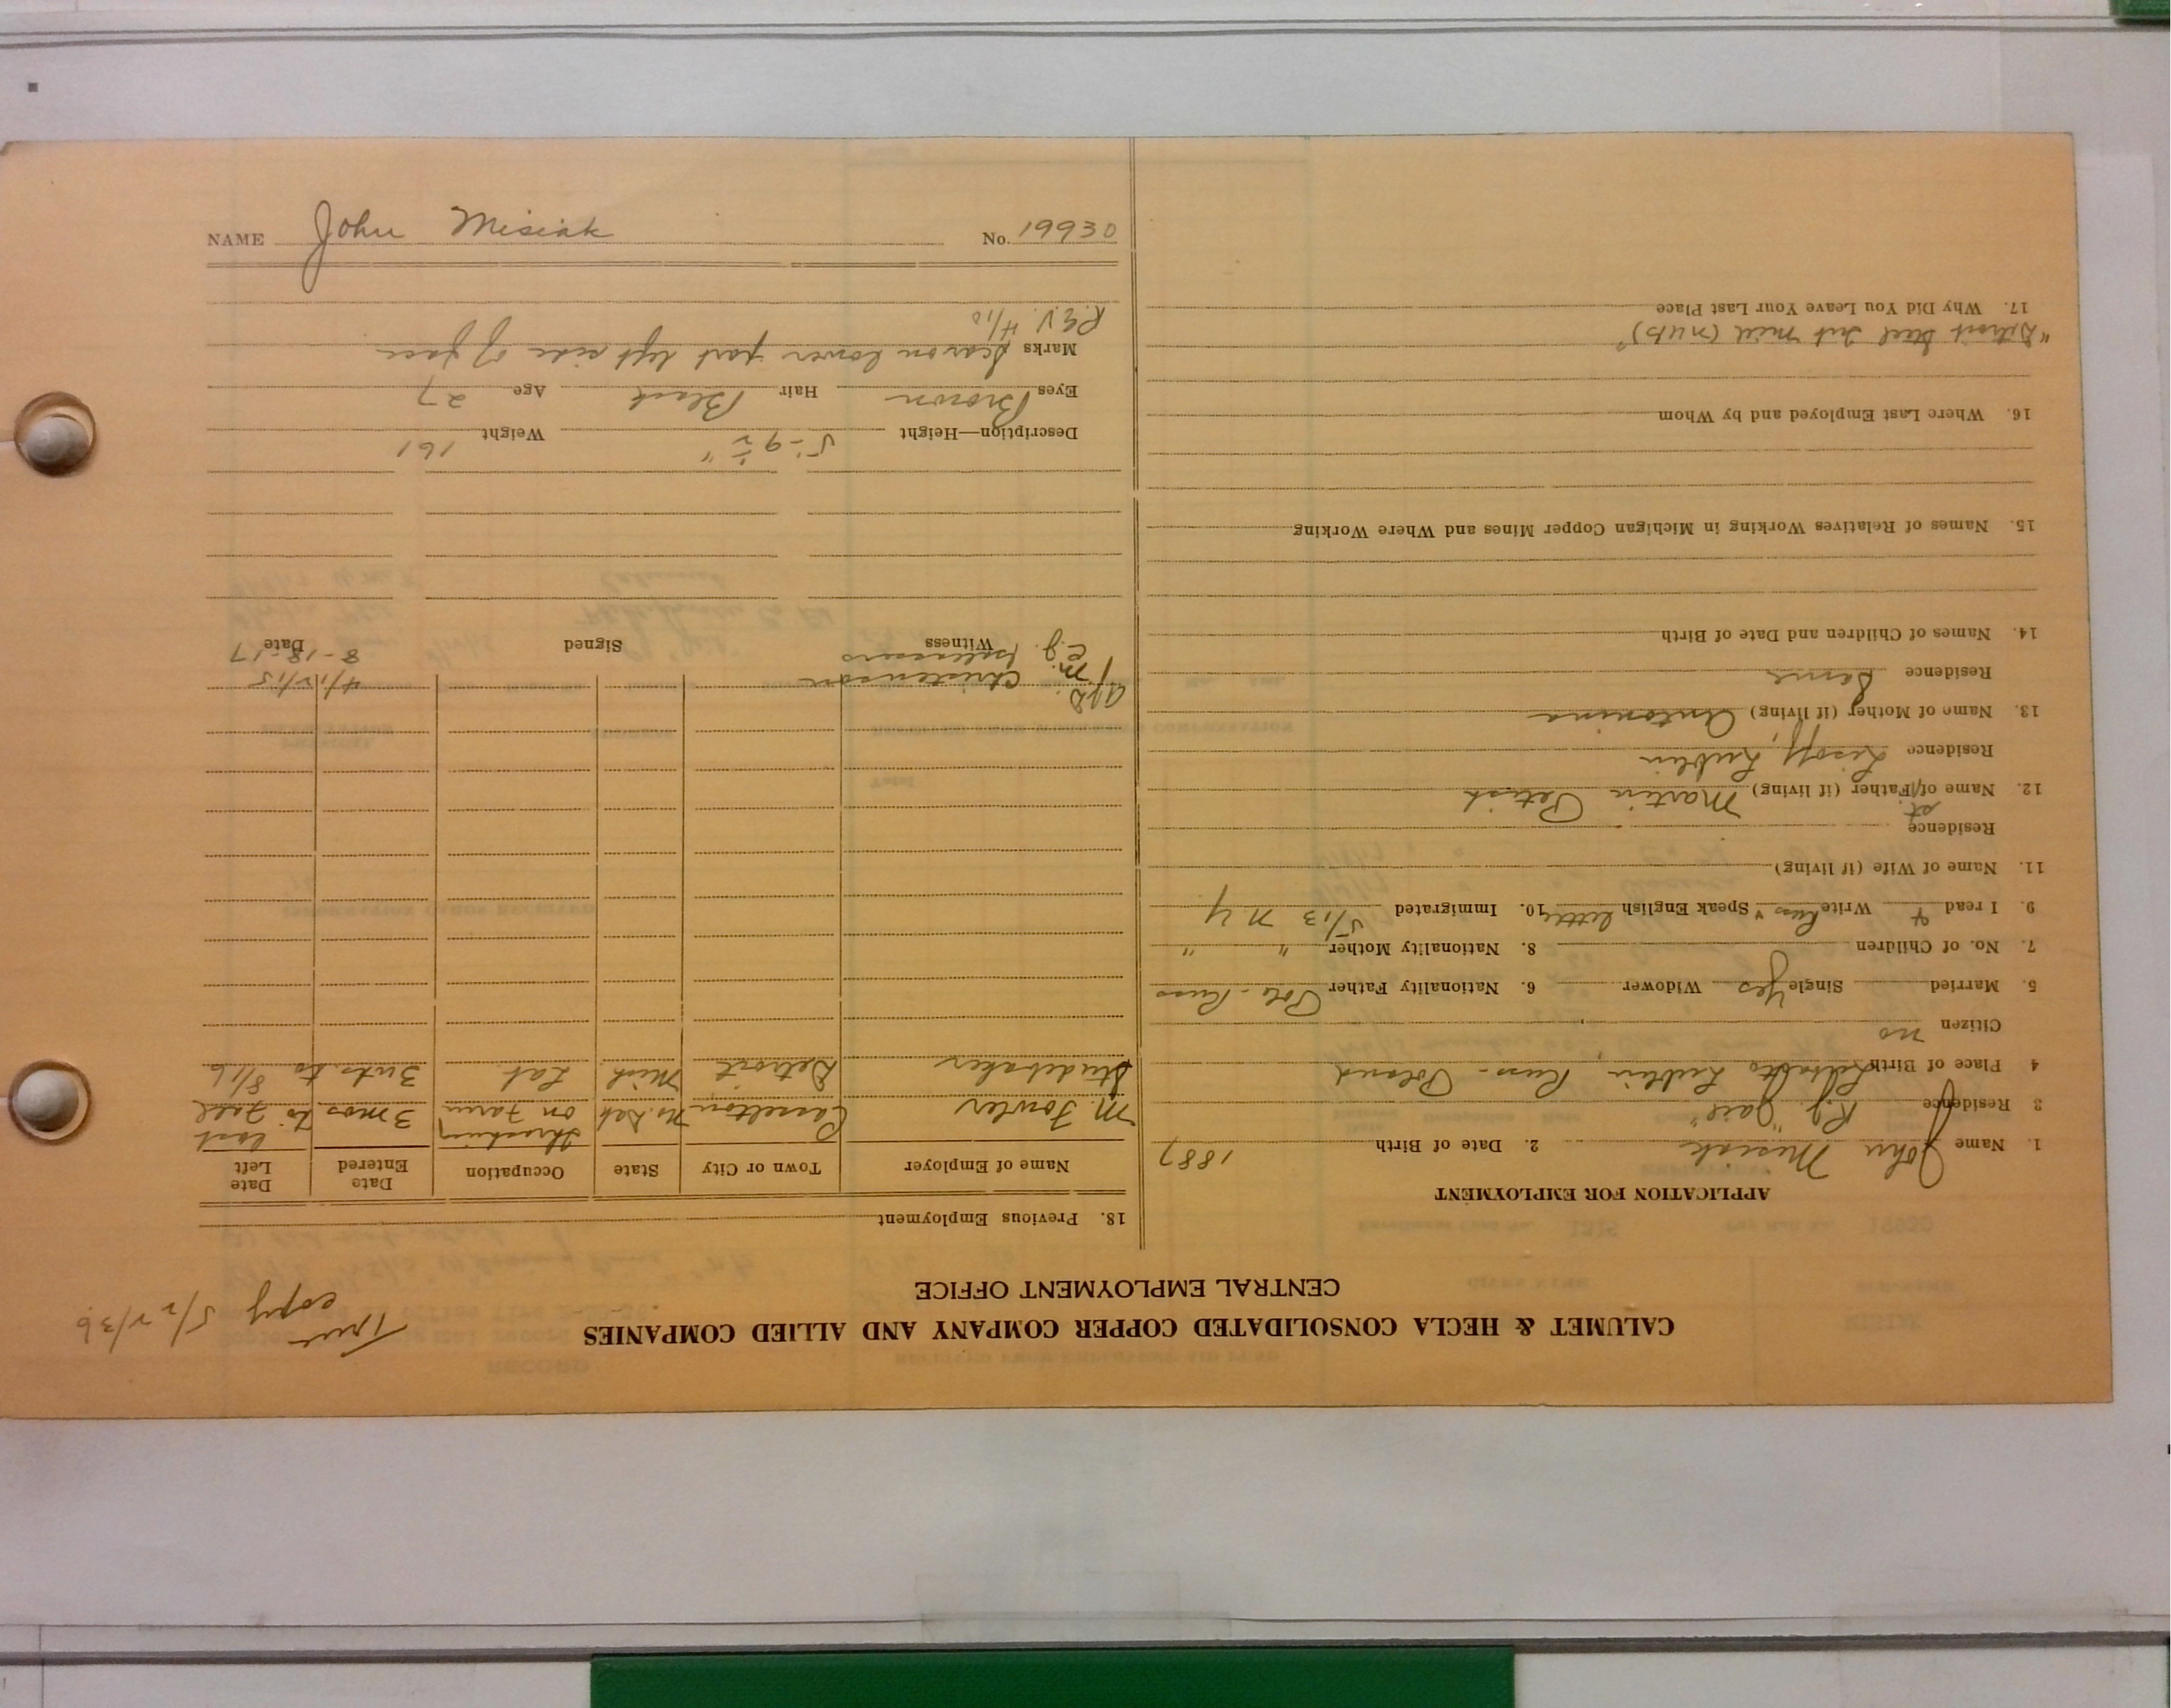 CALUMET & HECLA CONSOLIDATED COPPER COMPANY AND ALLIED COMPANIES
CENTRAL EMPLOYMENT OFFICE
True copy 5/22/36
APPLICATION FOR EMPLOYMENT
1. Name John Misiak 2. Date of Birth 1887
3 Residence R.J. "Jail"
4 Place of Birth Lublin Russ-Poland
Citizen no
5. Married Single Yes Widower 6. Nationality Father Pol-Russ
7. No. of Children 8. Nationality Mother " "
9. I read & Write Russ Speak English little 10. Immigrated 5/13 N Y
11. Name of Wife (if living)
Residence
12. Name of Father (if living) Martin
Residence Lublin
13. Name of Mother (if living) Antonina
Residence Same
14. Names of Children and Date of Birth
15. Names of Relatives Working in Michigan Copper Mines and Where Working
16. Where Last Employed and by Whom
17. Why Did You Leave Your Last Place
"Detroit Steel
18. Previous Employment
Name of Employer Town or City State Occupation Date Entered Date Left
M. Fowler Casselton No. Dak Threshing on Farm 3 mos to Fall last
Studebaker Detroit Mich Lab 3 wks to 8/16
Christenson 4/12/15
Witness Signed Date 8-18-17
Description—Height 5'-9½" Weight 161
Eyes Brown Hair Black Age 27
Marks Scar on lower part left side of face
R.E.V. 4/10
NAME John Misiak No. 19930